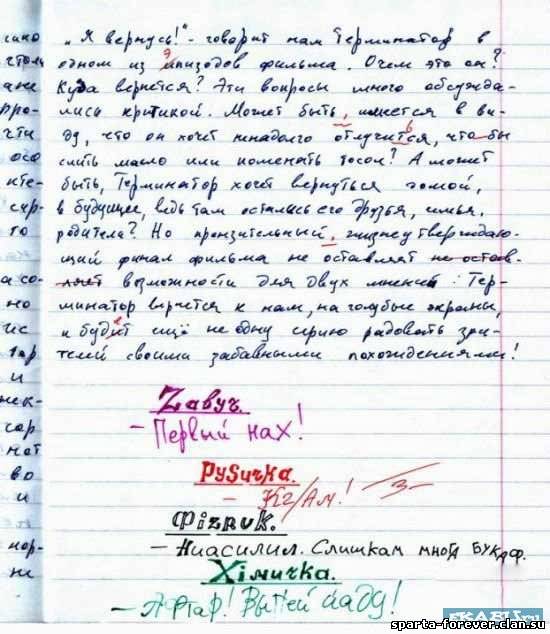 „Я вернусь!" - говорит нам Терминатор в
одном из эпизодов фильма. О чем это он?
Куда вернется? Эти вопросы много обсужда-
лись критикой. Может быть, имеется в ви-
ду, что он хочет ненадолго отлучится, что бы
слить масло или поменять тосол? А может
быть, Терминатор хочет вернуться домой,
в будущее, ведь там остались его друзья, семья,
родители? Но пронзительный, жизнеутверждаю-
щий финал фильма не оставляет не остав-
ляет возможности для двух мнений: Тер-
минатор вернется к нам, на голубые экраны,
и будет ещё не одну серию радовать зри-
телей своими забавными похождениями!
Zавуч.
- Первый нах!
РуSичка.
- Кг/Ам! 3-
Фiзрuк.
- Ниасилил. Слишкам многа букаф.
Хiмичка.
- Афтар! Выпей йаду!
PIKABU.ru
sparta-forever.clan.su